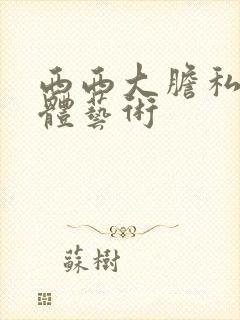 西西大膽私
體藝術
蘇樹